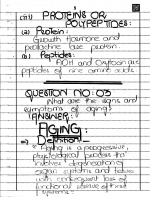 (iii) PROTEINS OR
POLYPEPTIDES:
(a) Protein:
Growth Hormone and
prolactine are protein.
(b) Peptides:
ADH and Oxytocin are
peptides of nine amino acids.
QUESTION NO: 03
What are the signs and
symptoms of aging?
ANSWER:
AGING:
Definition
Aging is a progressive,
physiological process that
involves degeneration of
organ systems and tissues
with consequent loss of
functional reserve of these
systems.